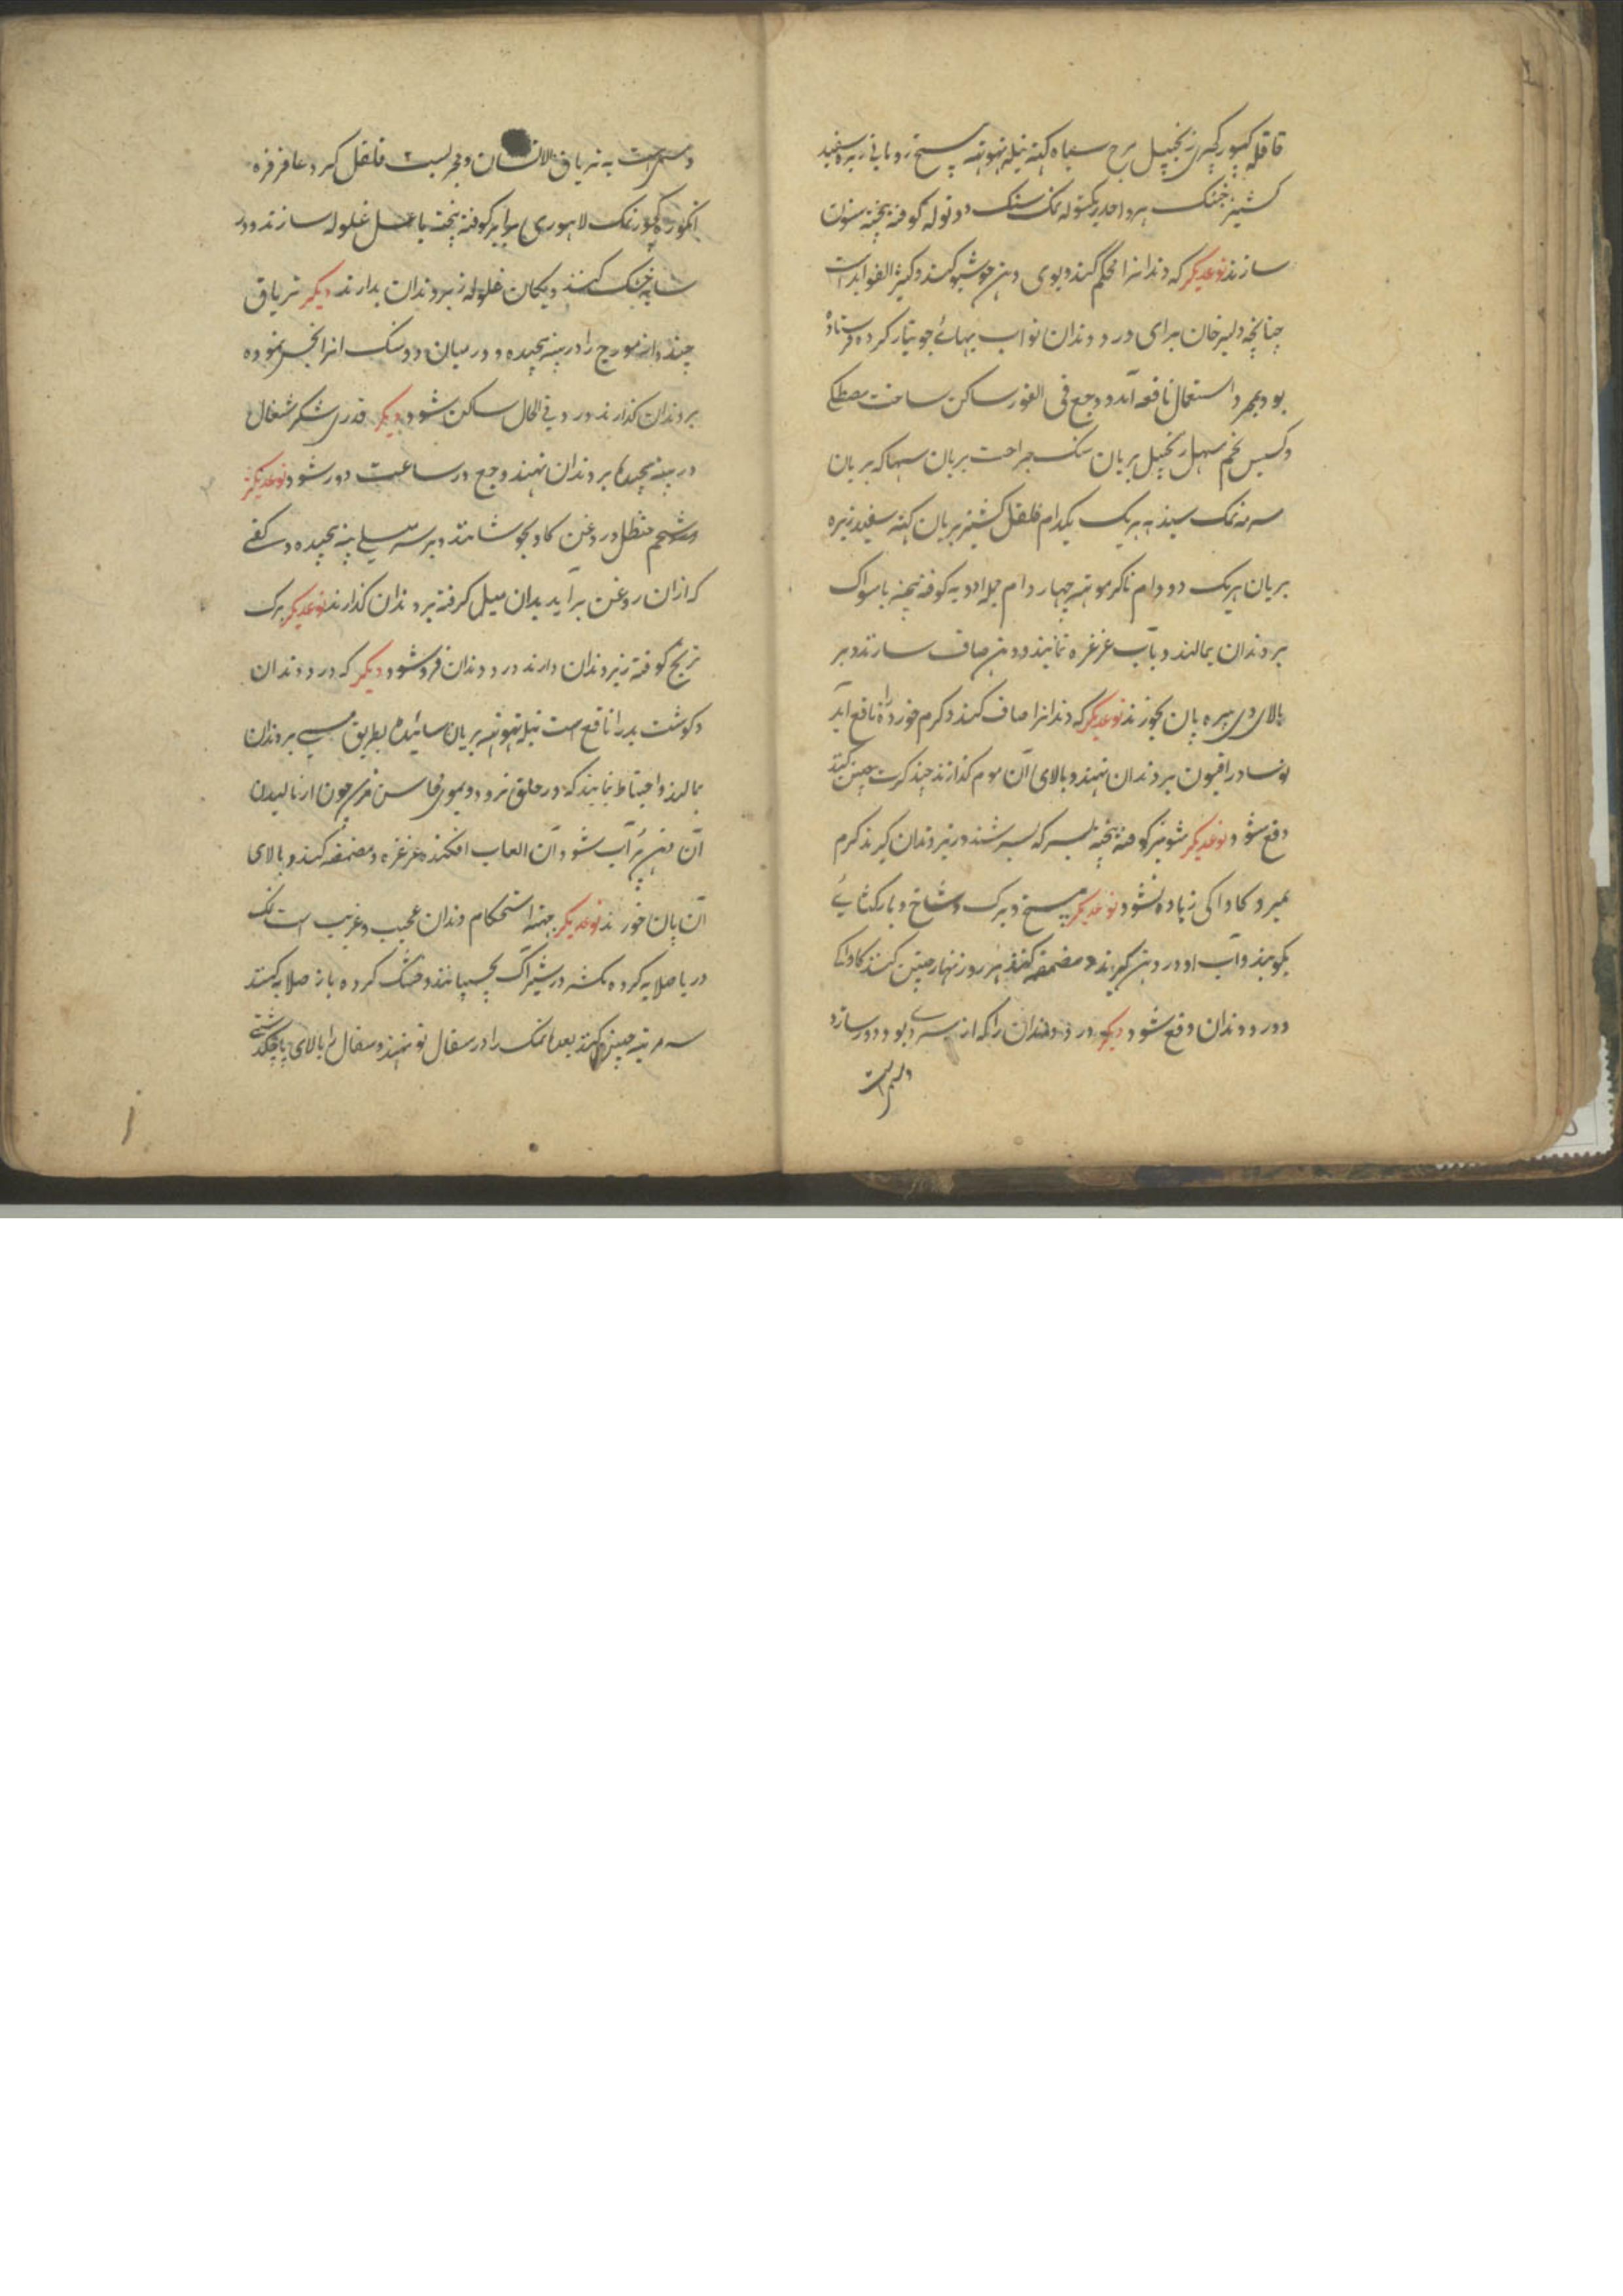 قاقله کپور کچری زنجبیل مرچ سیاه کته نیله تهوتهه بیخ رو باقی زیره سفید
کشنیز خشک هر واحد یکتوله نمک سنک دو توله کوفته بیخته سنون
سازند نوعدیکر که دندانرا محکم کند و بوی دهن خوشبو کند و کثیر الفواید است
چنانچه دلیر خان برای درد دندان نواب بهائے جو تیار کرده فرستاده
بود بمجرد استعمال نافع آمد و وجع فی الفور ساکن ساخت مصطکے
و کسیس تخم سهل زنجبیل بریان سنک جراحت بریان سهاکه بریان
سرمه نمک سیندهه هریک یکدام فلفل کشنیز بریان کته سفید زیره
بریان هریک دو دام ناکرموتهه چهار دام جمله ادویه کوفته بیخته با مسواک
بر دندان بمالند و بآب غرغره نمایند و دهن صاف سازند و بر
بالای وی بیره پان بخورند نوعدیکر که دندانرا صاف کند و کرم خورده را نافع آید
نوسادر افیون بر دندان نهند و بالای آن موم کذارند چند کرت چنین کنند
دفع شود نوعدیکر شونیز کوفته بیخته بسرکه بسرشند و زیر دندان کیرند کرم
بمیرد و کاواکی زیاده نشود نوعدیکر بیخ و برک و شاخ و بار کتائے
بکوبند و آب او در دهن کیرند و مضمضه کنند هر روز نهار چنین کنند کاواکے
و درد دندان دفع شود دیکر درد دندان را که از سردے بود دور سازد
و سرد است
و سرد است به تریاق الانسان و مجربست فلفل کرد عاقرقرها
انکوزه کپور نمک لاهوری برابر کوفته بیخته با عسل غلوله سازند و در
سایه خشک کنند و یکان غلوله زیر دندان بدارند دیکر تریاق
چند دانه مورچ را در پنبه پیچیده و در میان دو سنک انرا نموده
بر دندان کذارند درد فی الحال ساکن شود دیکر قدری شکر شغال
در پنبه پیچیده بر دندان نهند وجع در ساعت دور شود نوعدیکر
شحم حنظل در روغن کاو بجوشانند و بر سر میلے پنبه پیچیده
که ازان روغن برآید بدان میل کرفته بر دندان کذارند نوعدیکر برک
ترنج کوفته زیر دندان دارند درد دندان فرو شود دیکر که درد دندان
و کوشت بد را نافع است نیله تهوتهه بریان سائیده بطریق مسی بر دندان
بمالند و احتیاط نمایند که در حلق نرود و چون از مالیدن
آن دهن پر آب شود آن العاب افکنده غرغره و مضمضه کنند و بالای
آن پان خورند نوعدیکر جهته استحکام دندان عجیب و غریب است نمک
دریا صلایه کرده در شیر آک بچسپانند و خشک کرده باز صلایه کنند
سه مرتبه چنین کنند بعده نمک را در سفال نو نهند و سفال را بالای پاچکدشتی